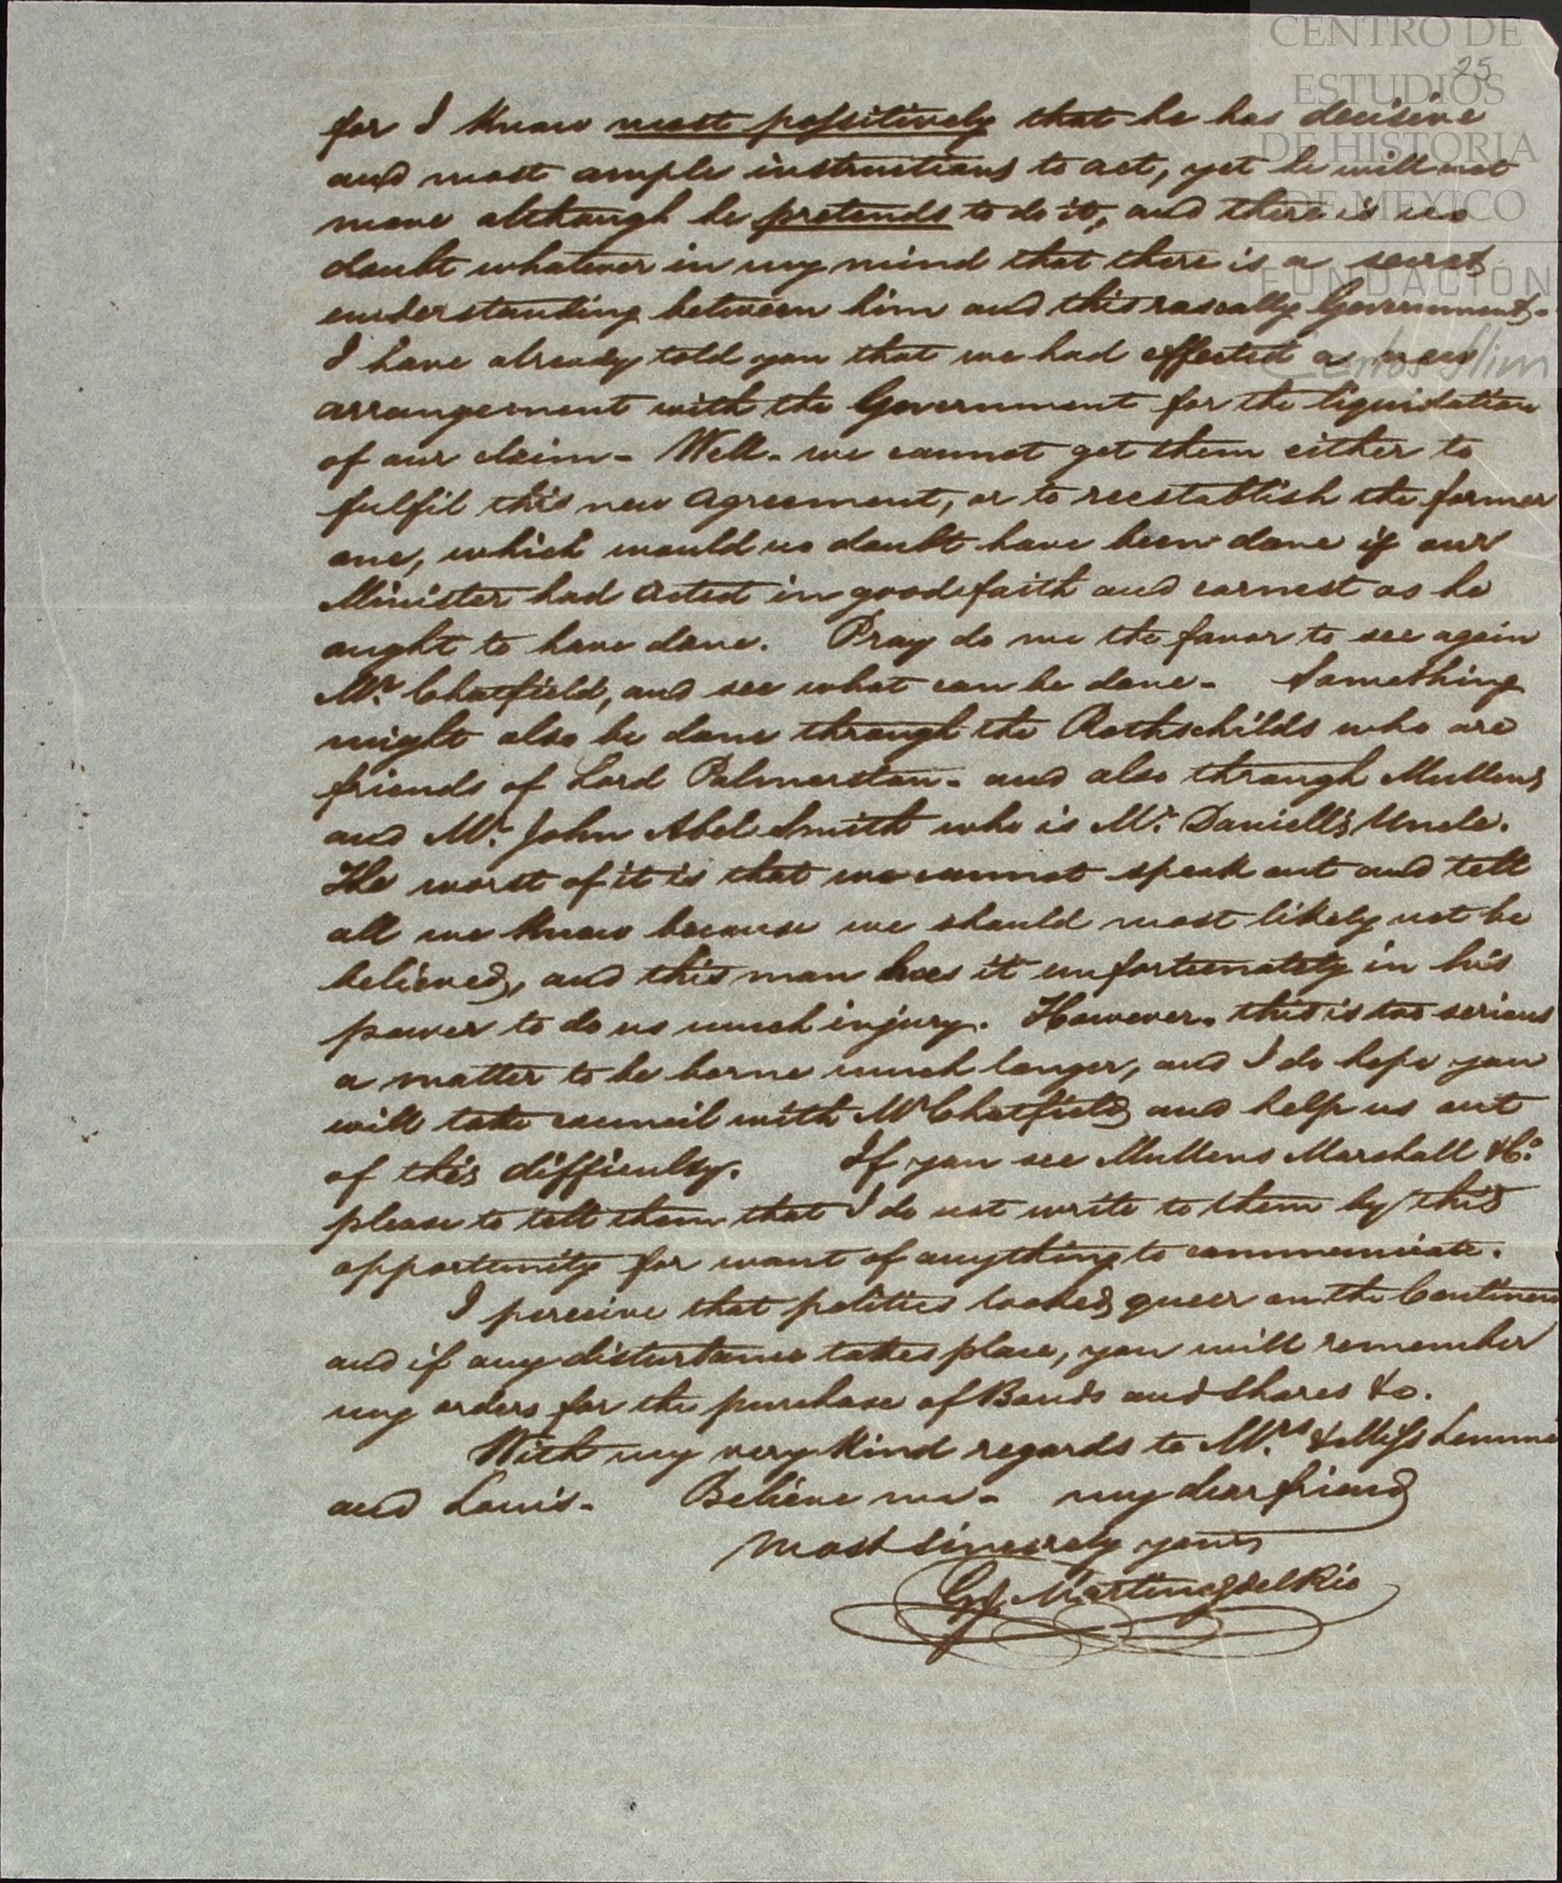 CENTRO DE
ESTUDIOS
DE HISTORIA
DE MEXICO
FUNDACIÓN
Carlos Slim
25
for I know most possitively that he has decisive
and most ample instructions to act, yet he will not
move although he pretends to do it, and there is no
doubt whatever in my mind that there is a secret
understanding between him and this rascally Government.
I have already told you that we had effected a new
arrangement with the Government for the liquidation
of our claim - Well - we cannot get them either to
fulfil this new agreement, or to reestablish the former
one, which would no doubt have been done if our
Minister had acted in good faith and earnest as he
ought to have done. Pray do me the favor to see again
Mr. Chatfield, and see what can be done - Something
might also be done through the Rothschilds who are
friends of Lord Palmerston - and also through Mullens
and Mr. John Abel Smith who is Mr. Daniell's Uncle.
The worst of it is that we cannot speak out and tell
all we know because we should most likely not be
believed, and this man has it unfortunately in his
power to do us much injury. However - this is too serious
a matter to be borne much longer, and I do hope you
will take council with Mr Chatfield and help us out
of this difficulty. If you see Mullens Marshall & Co.
please to tell them that I do not write to them by this
opportunity for want of anything to communicate.
I perceive that politics looked queer on the Continen
and if any disturbance takes place, you will remember
my orders for the purchase of Bonds and Shares &c.
With my very kind regards to Mrs. & Miss Lemme
and Louis - Believe me - my dear friend
most sincerely yours
G J. Martinez del Rio